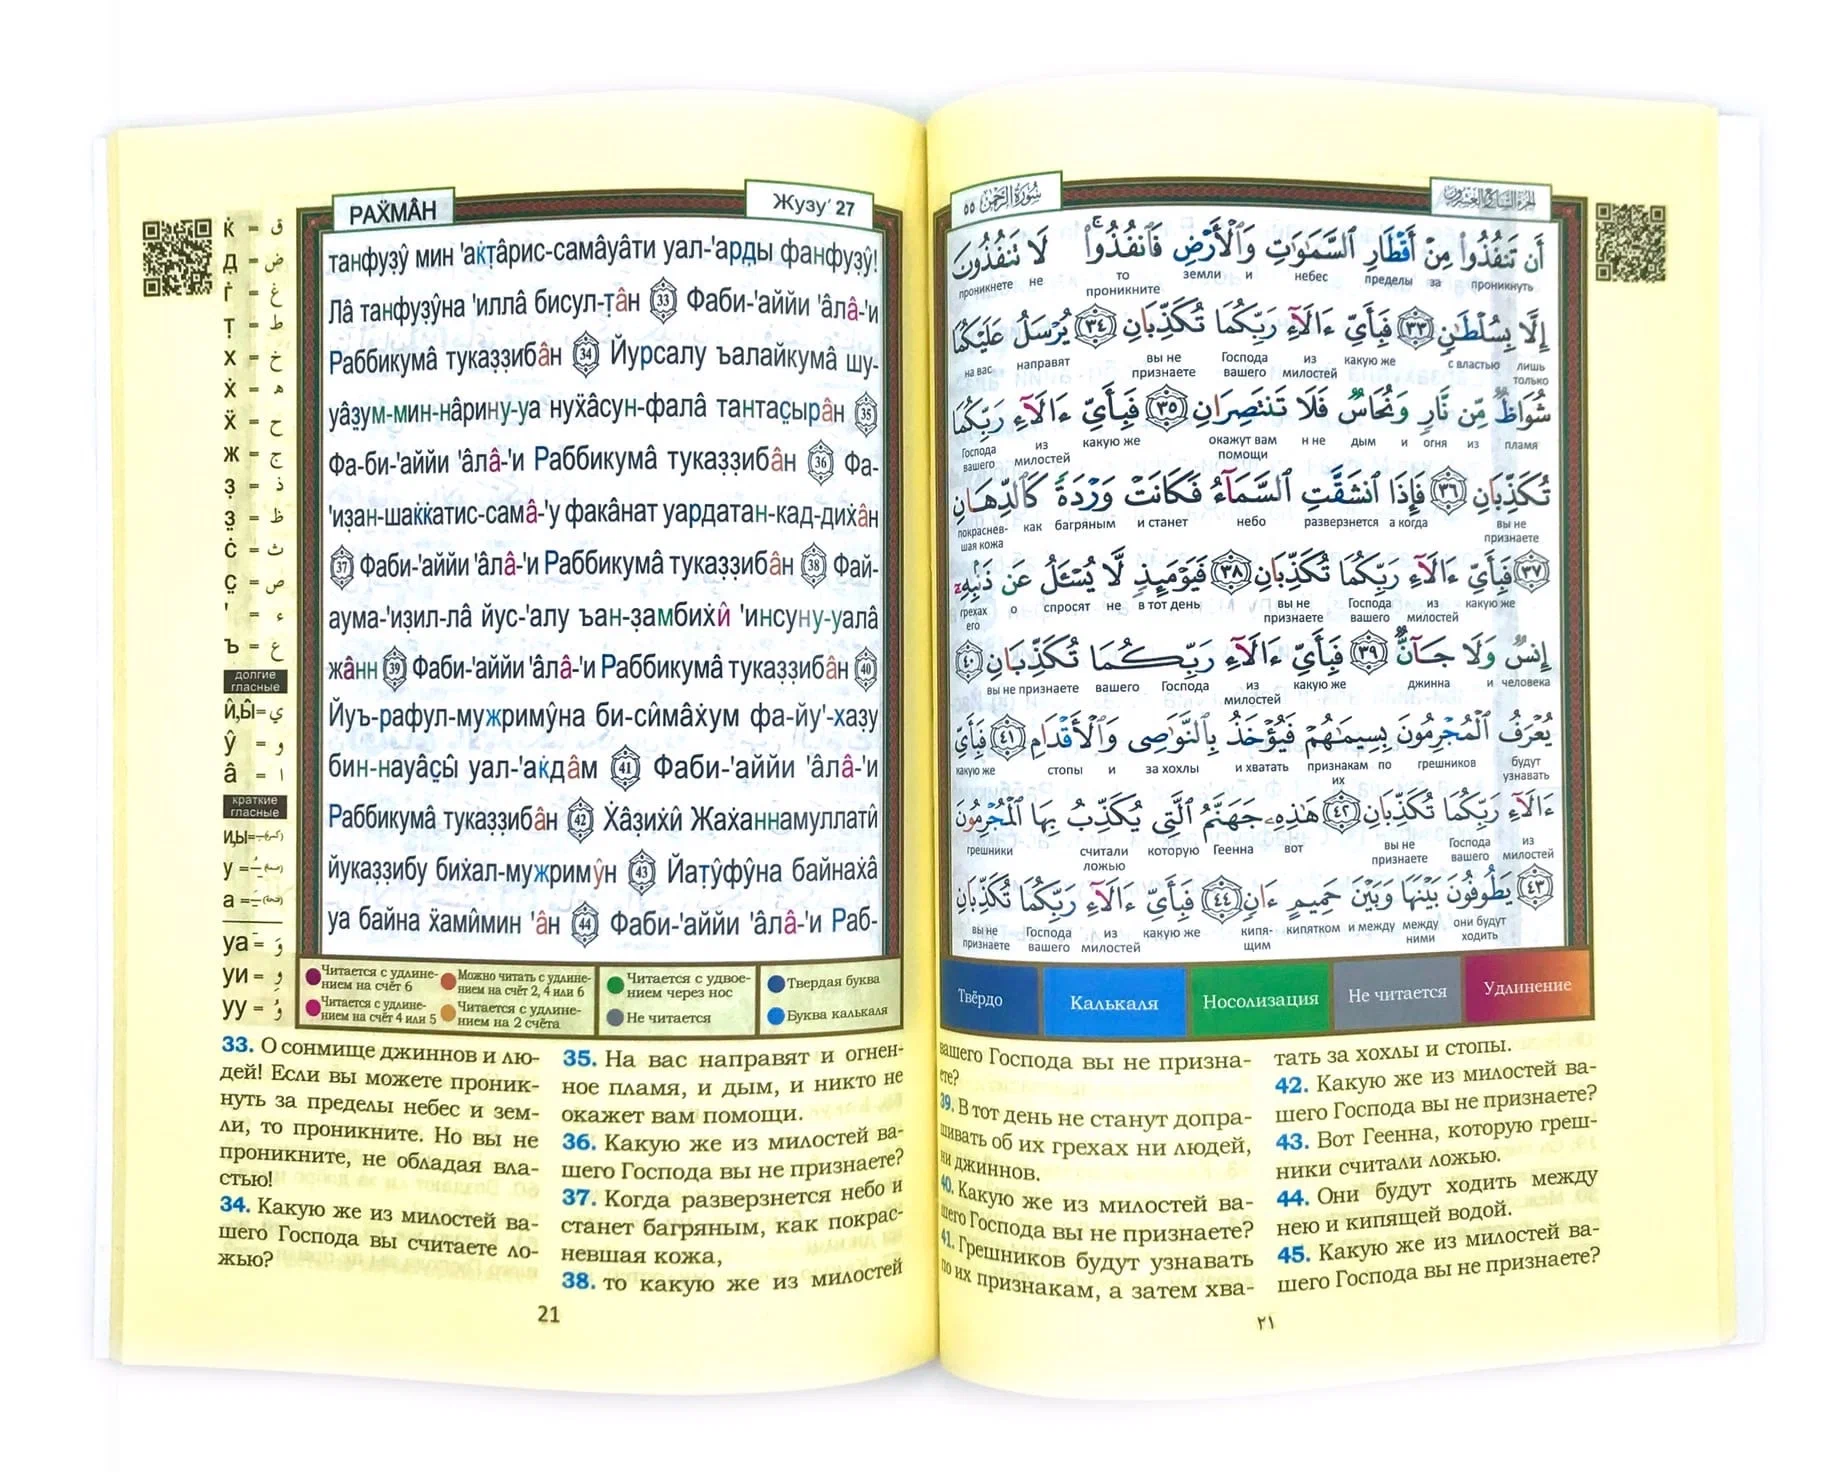 РАẌМÂН
Жузуʼ 27
танфуẓŷ мин 'аќṭâрис-самâуâти уал-'арды фанфуẓŷ!
Лâ танфуẓŷна 'иллâ бисул-ṭâн 33 Фаби-'аййи 'âлâ-'и
Раббикумâ туказ̣з̣ибâн 34 Йурсалу ъалайкумâ шу-
уâз̤ум-мин-нâрину-уа нух̈âсун-фалâ тантас̣ырâн 35
Фа-би-'аййи 'âлâ-'и Раббикумâ туказ̣з̣ибâн 36 Фа-
'из̣ан-шаќќатис-самâ-'у факâнат уардатан-кад-дих̇âн
37 Фаби-'аййи 'âлâ-'и Раббикумâ туказ̣з̣ибâн 38 Фай-
аума-'из̣ил-лâ йус-'алу ъан-з̣амбих̇û 'инсуну-уалâ
жâнн 39 Фаби-'аййи 'âлâ-'и Раббикумâ туказ̣з̣ибâн 40
Йуъ-рафул-мужримŷна би-сûмâх̇ум фа-йу'-хаз̣у
бин-науâс̣ы̂ уал-'аќдâм 41 Фаби-'аййи 'âлâ-'и
Раббикумâ туказ̣з̣ибâн 42 Х̇âз̣их̇û Жах̇аннамуллатû
йуказ̣з̣ибу бих̇ал-мужримŷн 43 Йаṭŷфŷна байнах̇â
уа байна х̈амûмин 'âн 44 Фаби-'аййи 'âлâ-'и Раб-
ќ = ق
д̣ = ض
ѓ = غ
ṭ = ط
х = خ
х̇ = ه
х̈ = ح
ж = ج
з̣ = ذ
з̤ = ظ
с̇ = ث
с̣ = ص
' = ء
ъ = ع
долгие
гласные
Û,Ы̂=ي
Ŷ = و
â = ا
краткие
гласные
и,ы=
у =
а =
уа = وَ
уи = وِ
уу = وُ
Читается с удлине-
нием на счёт 6
Можно читать с удлине-
нием на счёт 2, 4 или 6
Читается с удлине-
нием на счёт 4 или 5
Читается с удлине-
нием на 2 счёта
Читается с удвое-
нием через нос
Не читается
Твердая буква
Буква калькаля
33. О сонмище джиннов и лю-
дей! Если вы можете проник-
нуть за пределы небес и зем-
ли, то проникните. Но вы не
проникните, не обладая вла-
стью!
34. Какую же из милостей ва-
шего Господа вы считаете ло-
жью?
35. На вас направят и огнен-
ное пламя, и дым, и никто не
окажет вам помощи.
36. Какую же из милостей ва-
шего Господа вы не признаете?
37. Когда разверзнется небо и
станет багряным, как покрас-
невшая кожа,
38. то какую же из милостей
21
سُورَةُ الرَّحْمٰن ٥٥
الجزء السابع والعشرون
أَن تَنفُذُوا۟ مِنْ أَقْطَارِ ٱلسَّمَـٰوَٰتِ وَٱلْأَرْضِ فَٱنفُذُوا۟ ۚ لَا تَنفُذُونَ
проникнуть за пределы небес и земли то проникните не проникнете
إِلَّا بِسُلْطَـٰنٍ ٣٣ فَبِأَىِّ ءَالَآءِ رَبِّكُمَا تُكَذِّبَانِ ٣٤ يُرْسَلُ عَلَيْكُمَا
лишь только с властью какую же из милостей Господа вашего вы не признаете направят на вас
شُوَاظٌ مِّن نَّارٍ وَنُحَاسٌ فَلَا تَنتَصِرَانِ ٣٥ فَبِأَىِّ ءَالَآءِ رَبِّكُمَا
пламя из огня и дым н не окажут вам помощи какую же из милостей Господа вашего
تُكَذِّبَانِ ٣٦ فَإِذَا ٱنشَقَّتِ ٱلسَّمَآءُ فَكَانَتْ وَرْدَةً كَٱلدِّهَانِ
вы не признаете а когда разверзнется небо и станет багряным как покраснев-шая кожа
٣٧ فَبِأَىِّ ءَالَآءِ رَبِّكُمَا تُكَذِّبَانِ ٣٨ فَيَوْمَئِذٍ لَّا يُسْـَٔلُ عَن ذَنۢبِهِۦٓ
какую же из милостей Господа вашего вы не признаете в тот день не спросят о грехах его
إِنسٌ وَلَا جَآنٌّ ٣٩ فَبِأَىِّ ءَالَآءِ رَبِّكُمَا تُكَذِّبَانِ ٤٠
человека и джинна какую же из милостей Господа вашего вы не признаете
يُعْرَفُ ٱلْمُجْرِمُونَ بِسِيمَـٰهُمْ فَيُؤْخَذُ بِٱلنَّوَٰصِى وَٱلْأَقْدَامِ ٤١ فَبِأَىِّ
будут узнавать грешников по признакам их и хватать за хохлы и стопы какую же
ءَالَآءِ رَبِّكُمَا تُكَذِّبَانِ ٤٢ هَـٰذِهِۦ جَهَنَّمُ ٱلَّتِى يُكَذِّبُ بِهَا ٱلْمُجْرِمُونَ
из милостей Господа вашего вы не признаете вот Геенна которую считали ложью грешники
٤٣ يَطُوفُونَ بَيْنَهَا وَبَيْنَ حَمِيمٍ ءَانٍ ٤٤ فَبِأَىِّ ءَالَآءِ رَبِّكُمَا تُكَذِّبَانِ
они будут ходить между ними и между кипятком кипя-щим какую же из милостей Господа вашего вы не признаете
Твёрдо
Калькаля
Носолизация
Не читается
Удлинение
вашего Господа вы не призна-
ете?
39. В тот день не станут допра-
шивать об их грехах ни людей,
ни джиннов.
40. Какую же из милостей ва-
шего Господа вы не признаете?
41. Грешников будут узнавать
по их признакам, а затем хва-
тать за хохлы и стопы.
42. Какую же из милостей ва-
шего Господа вы не признаете?
43. Вот Геенна, которую греш-
ники считали ложью.
44. Они будут ходить между
нею и кипящей водой.
45. Какую же из милостей ва-
шего Господа вы не признаете?
٢١